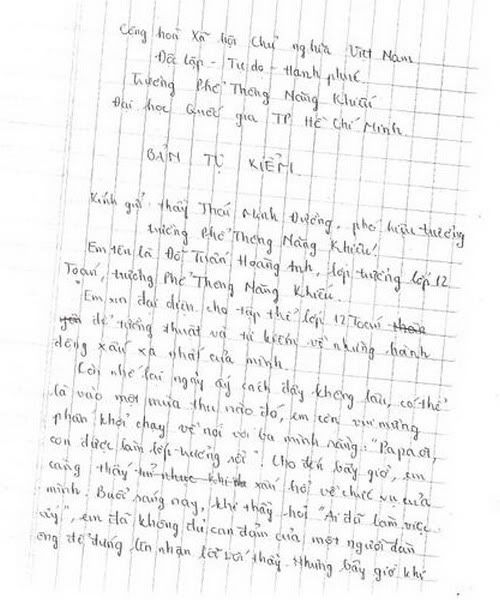 Cộng hoà Xã hội Chủ nghĩa Việt Nam
Độc lập - Tự do - Hạnh phúc
Trường Phổ Thông Năng Khiếu
Đại học Quốc gia TP Hồ Chí Minh
BẢN TỰ KIỂM
Kính gửi thầy Minh Đường, phó hiệu trưởng
trường Phổ Thông Năng Khiếu!
Em tên là Đỗ Tuấn Hoàng Anh, lớp trưởng lớp 12
Toán, trường Phổ Thông Năng Khiếu.
Em xin đại diện cho tập thể lớp 12 Toán
để tường thuật và tự kiểm về những hành
động xấu xa nhất của mình.
Còn nhớ lại ngày ấy cách đây không lâu, có thể
là vào một mùa thu nào đó, em còn vui mừng
phấn khởi chạy về nói với ba mình rằng: "Papa ơi,
con được làm lớp trưởng rồi". Cho đến bây giờ, em
càng thấy xấu hổ về chức vụ của
mình. Buổi sáng này, khi thầy hỏi "Ai đã làm việc
này", em đã không đủ can đảm của một người đàn
ông để đứng lên nhận lỗi với thầy. Nhưng bây giờ khi